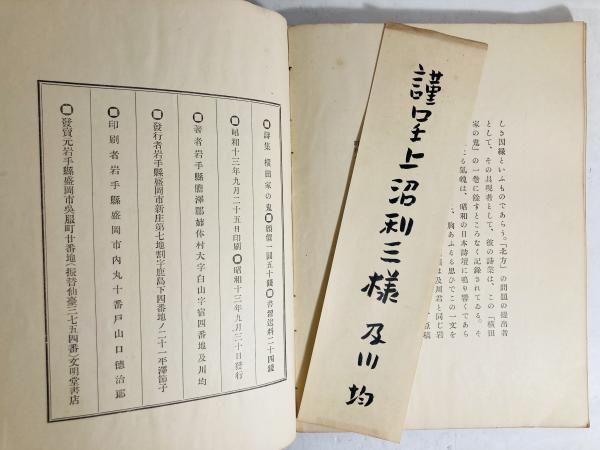 しき因縁といふものであらう。「北方」の問題の提出者
として、その具現者として、彼の詩業は、この「横田
家の鬼」の一巻に餘すところなく記録されてゐる。そ
る氣魄は、昭和の日本詩壇に鳴り響くであら
、胸あふるる思ひでこの一文を
は及川君と同じ岩
謹呈上 沼利三様 及川均
詩集 横田家の鬼 頒價一圓五十錢 書留送料二十四錢
昭和十三年九月二十五日印刷 昭和十三年九月三十日發行
著者 岩手縣膽澤郡姉体村大字白山字宿四番地 及川均
發行者 岩手縣盛岡市新庄第七地割字鹿島下四番地ノ二十一 平澤節子
印刷者 岩手縣盛岡市内丸十番戸 山口德治郎
發賣元 岩手縣盛岡市呉服町廿番地(振替仙臺三七五四番) 文明堂書店